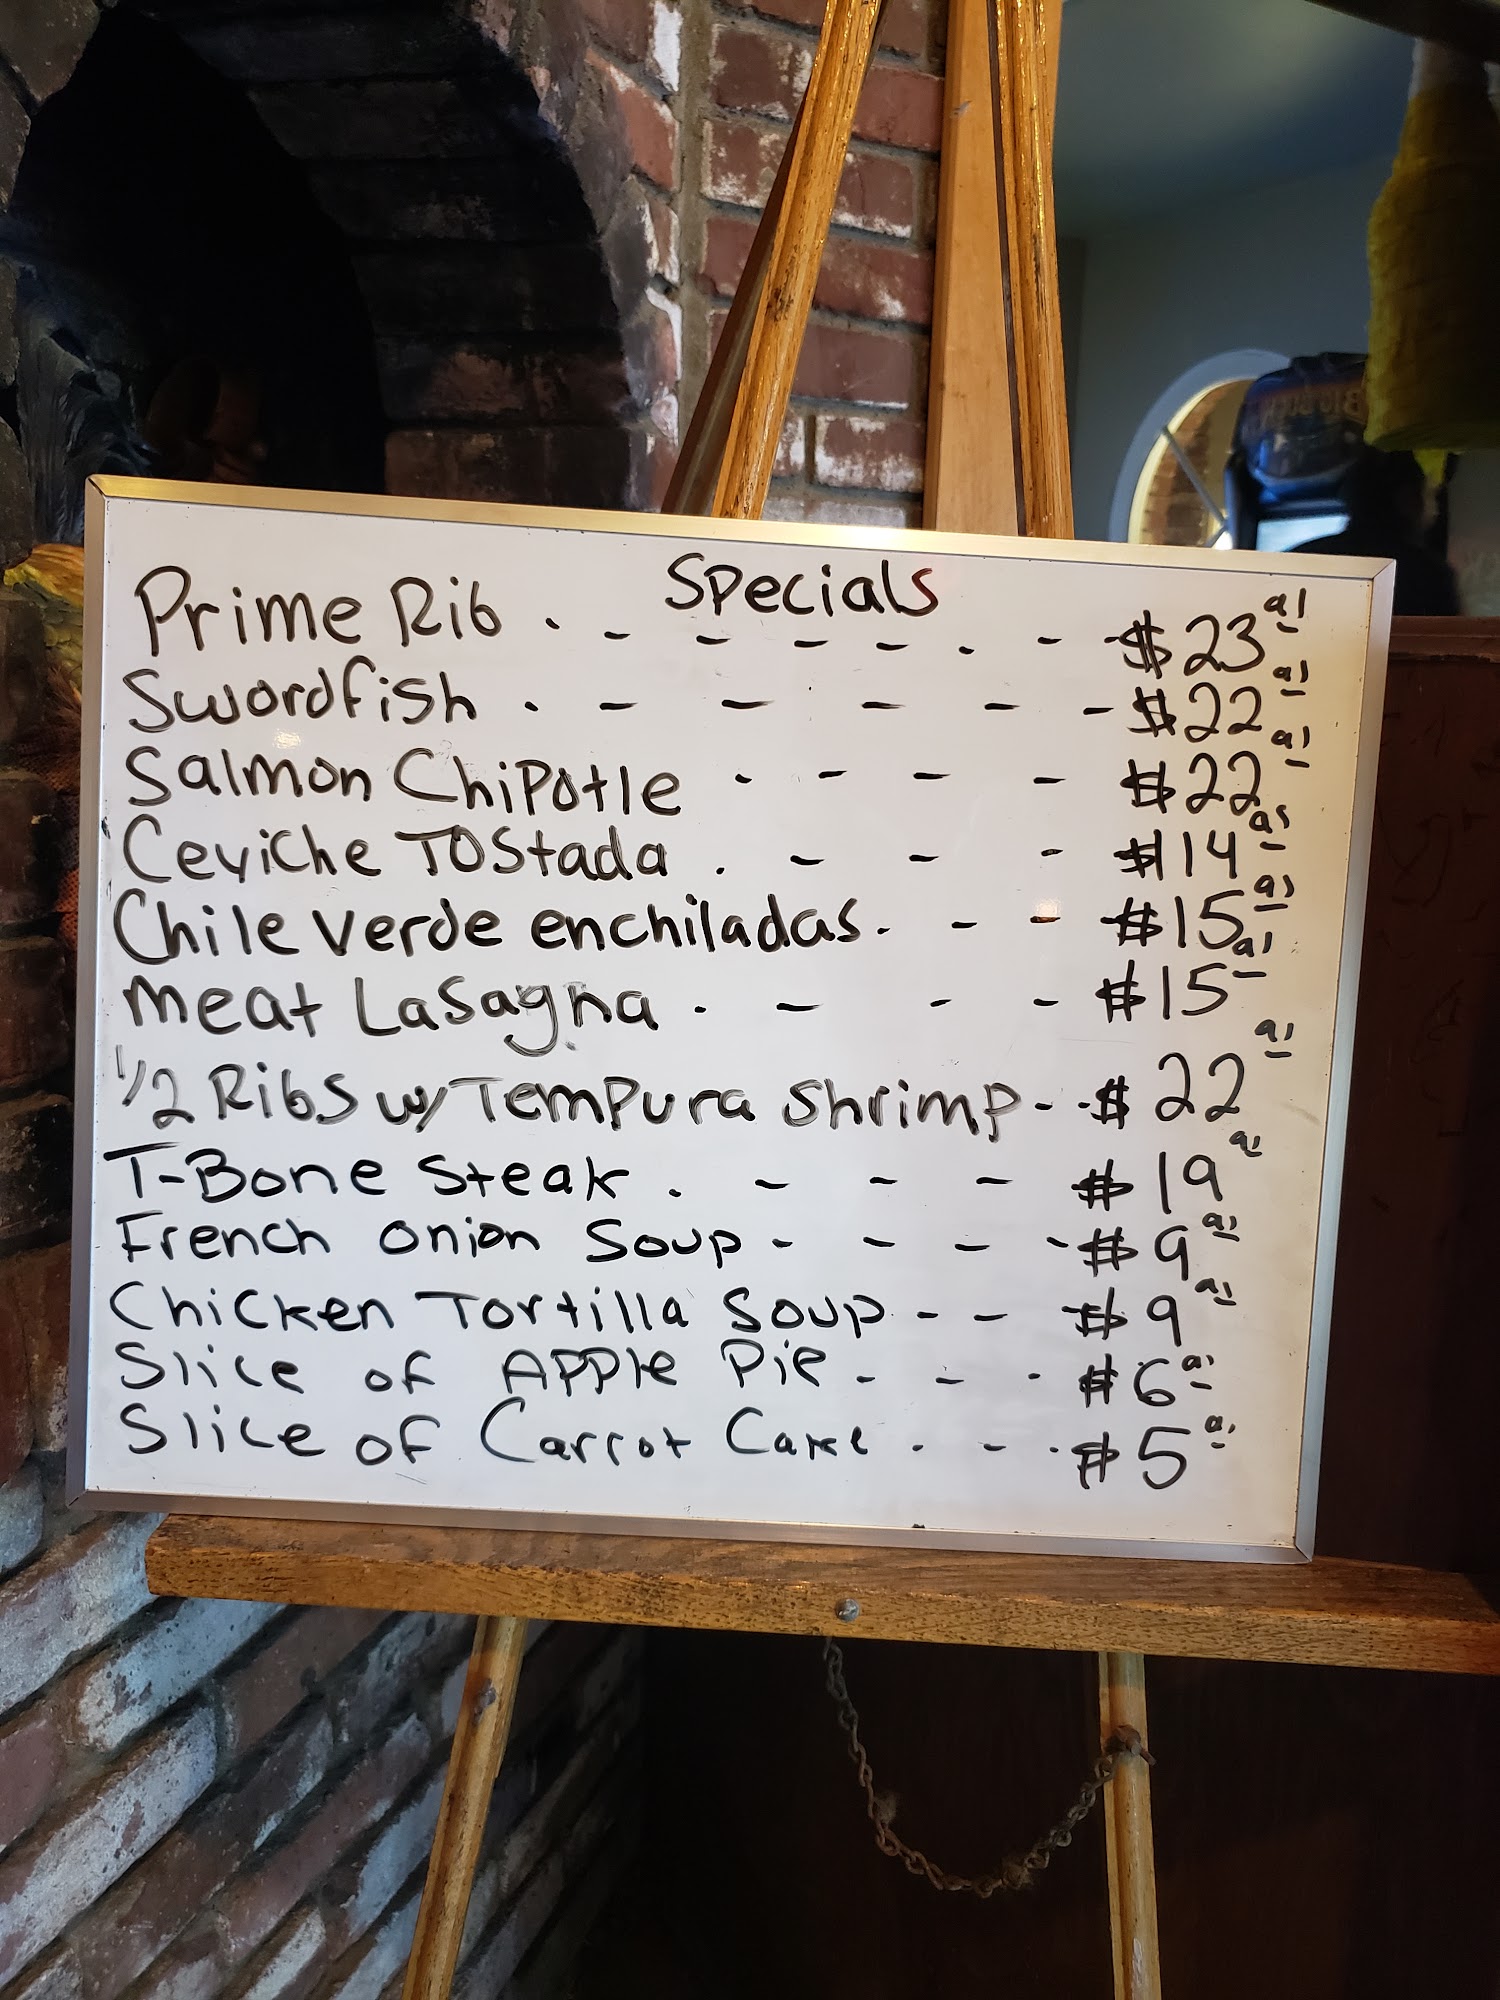 Specials
Prime Rib . - - - - . - - $23 91
Swordfish . - - - - - $22 91
Salmon Chipotle . - - - $22 91
Ceviche Tostada . - - - $14 95
Chile Verde enchiladas . - - $15 95
Meat Lasagna . - - - $15 91
1/2 Ribs w/ Tempura Shrimp - - $22 91
T-Bone Steak . - - - $19 91
French Onion Soup - - - - $9 91
Chicken Tortilla Soup - - $9 91
Slice of Apple Pie - - - $6 91
Slice of Carrot Cake . - - $5 91